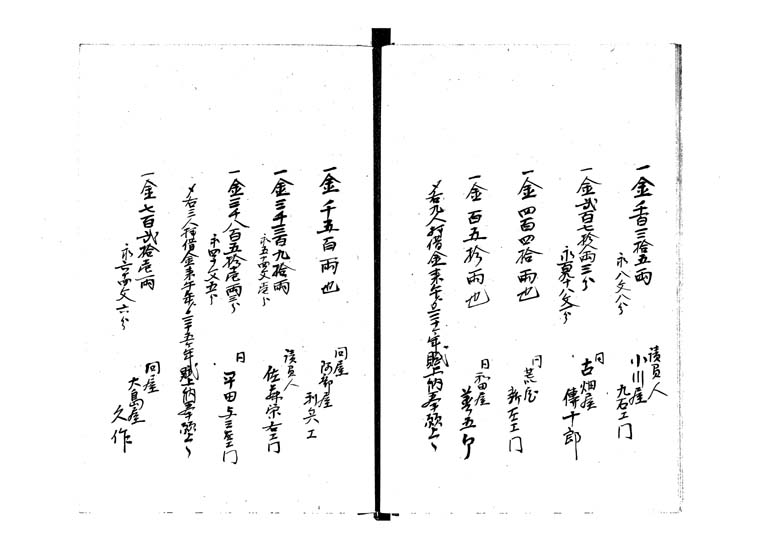 一金千百三拾五両
永八文八分
請負人
小川屋
九右エ門
一金弐百七拾両三分
永百十八文一分
同
古畑屋
傳十郎
一金四百四拾両也
同
荒屋
新左エ門
一金百五拾両也
同
屋
〆右九人拝借金来午年より三十ヶ年賦上納奉願上候
一金千五百両也
問屋
阿部屋
利兵エ
一金三千三百九拾両
請負人
佐藤栄右エ門
一金三千八百五拾壱両三分
永四文五分
同
平田与三右エ門
〆右三人拝借金来午年より二十五ヶ年賦上納奉願上候
一金七百弐拾壱両
問屋
大島屋
久作